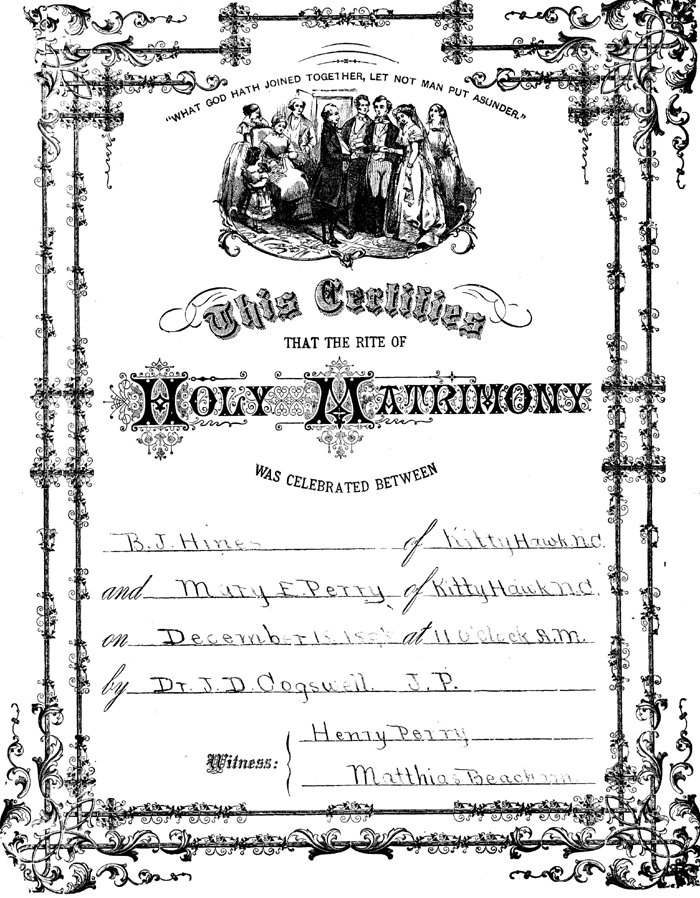 "WHAT GOD HATH JOINED TOGETHER, LET NOT MAN PUT ASUNDER."
This Certifies
THAT THE RITE OF
HOLY MATRIMONY
WAS CELEBRATED BETWEEN
B. J. Hines of Kitty Hawk N.C.
and Mary E. Perry of Kitty Hawk N.C.
on December at 11 O'clock A.M.
by Dr. J. D. Cogswell. J. P.
Witness:
Henry Perry
Matthias Beacham